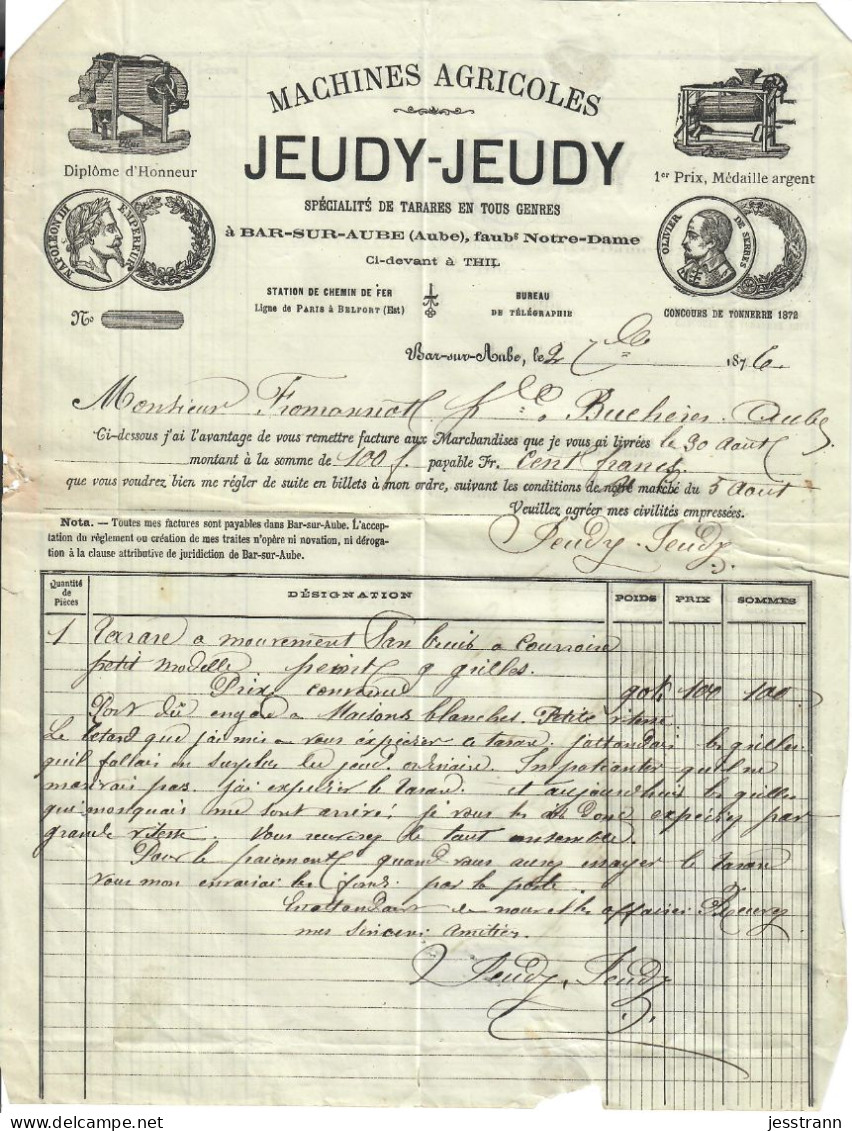 MACHINES AGRICOLES
JEUDY-JEUDY
Diplôme d'Honneur
1er Prix, Médaille argent
SPÉCIALITÉ DE TARARES EN TOUS GENRES
à BAR-SUR-AUBE (Aube), faubg Notre-Dame
Ci-devant à THIL
NAPOLEON III EMPEREUR
OLIVIER DE SERRES
STATION DE CHEMIN DE FER
Ligne de Paris à Belfort (Est)
BUREAU
DE TÉLÉGRAPHIE
CONCOURS DE TONNERRE 1872
No
Bar-sur-Aube, le 2 7bre 1876
Monsieur Bucheres Aube
Ci-dessous j'ai l'avantage de vous remettre facture aux Marchandises que je vous ai livrées le 30 Août
montant à la somme de 100 f. payable Fr. Cent francs
que vous voudrez bien me régler de suite en billets à mon ordre, suivant les conditions de notre marché du 5 Aout
Veuillez agréer mes civilités empressées.
Jeudy-Jeudy
Nota. — Toutes mes factures sont payables dans Bar-sur-Aube. L'accep-
tation du règlement ou création de mes traites n'opère ni novation, ni déroga-
tion à la clause attributive de juridiction de Bar-sur-Aube.
Quantité de Pièces DÉSIGNATION POIDS PRIX SOMMES
1 Tarare a mouvement San bruit a courroire
petit modelle peint 9 grilles.
Prix convenu 90k 100 100
Port dû en gare a Maisons blanches. Petite vitesse
Le retard que j'ai mis a vous expedier ce tarare. j'attandais les grilles
quil fallais en surplus du jeud ordinaire.
pas. j'ai expedier le tarare. et aujourdhuis les grilles
qui monquais me sont arrivé! je vous les ai donc expediez par
grande vitesse. Vous recevrez le tout ensemble.
Pour le paiement quand vous aurez essayer le tarare
vous mon envairai les fonds par la poste.
En attandant de nouvelles affaires Recevez
mes sinceres amities.
Jeudy. Jeudy
jesstrann